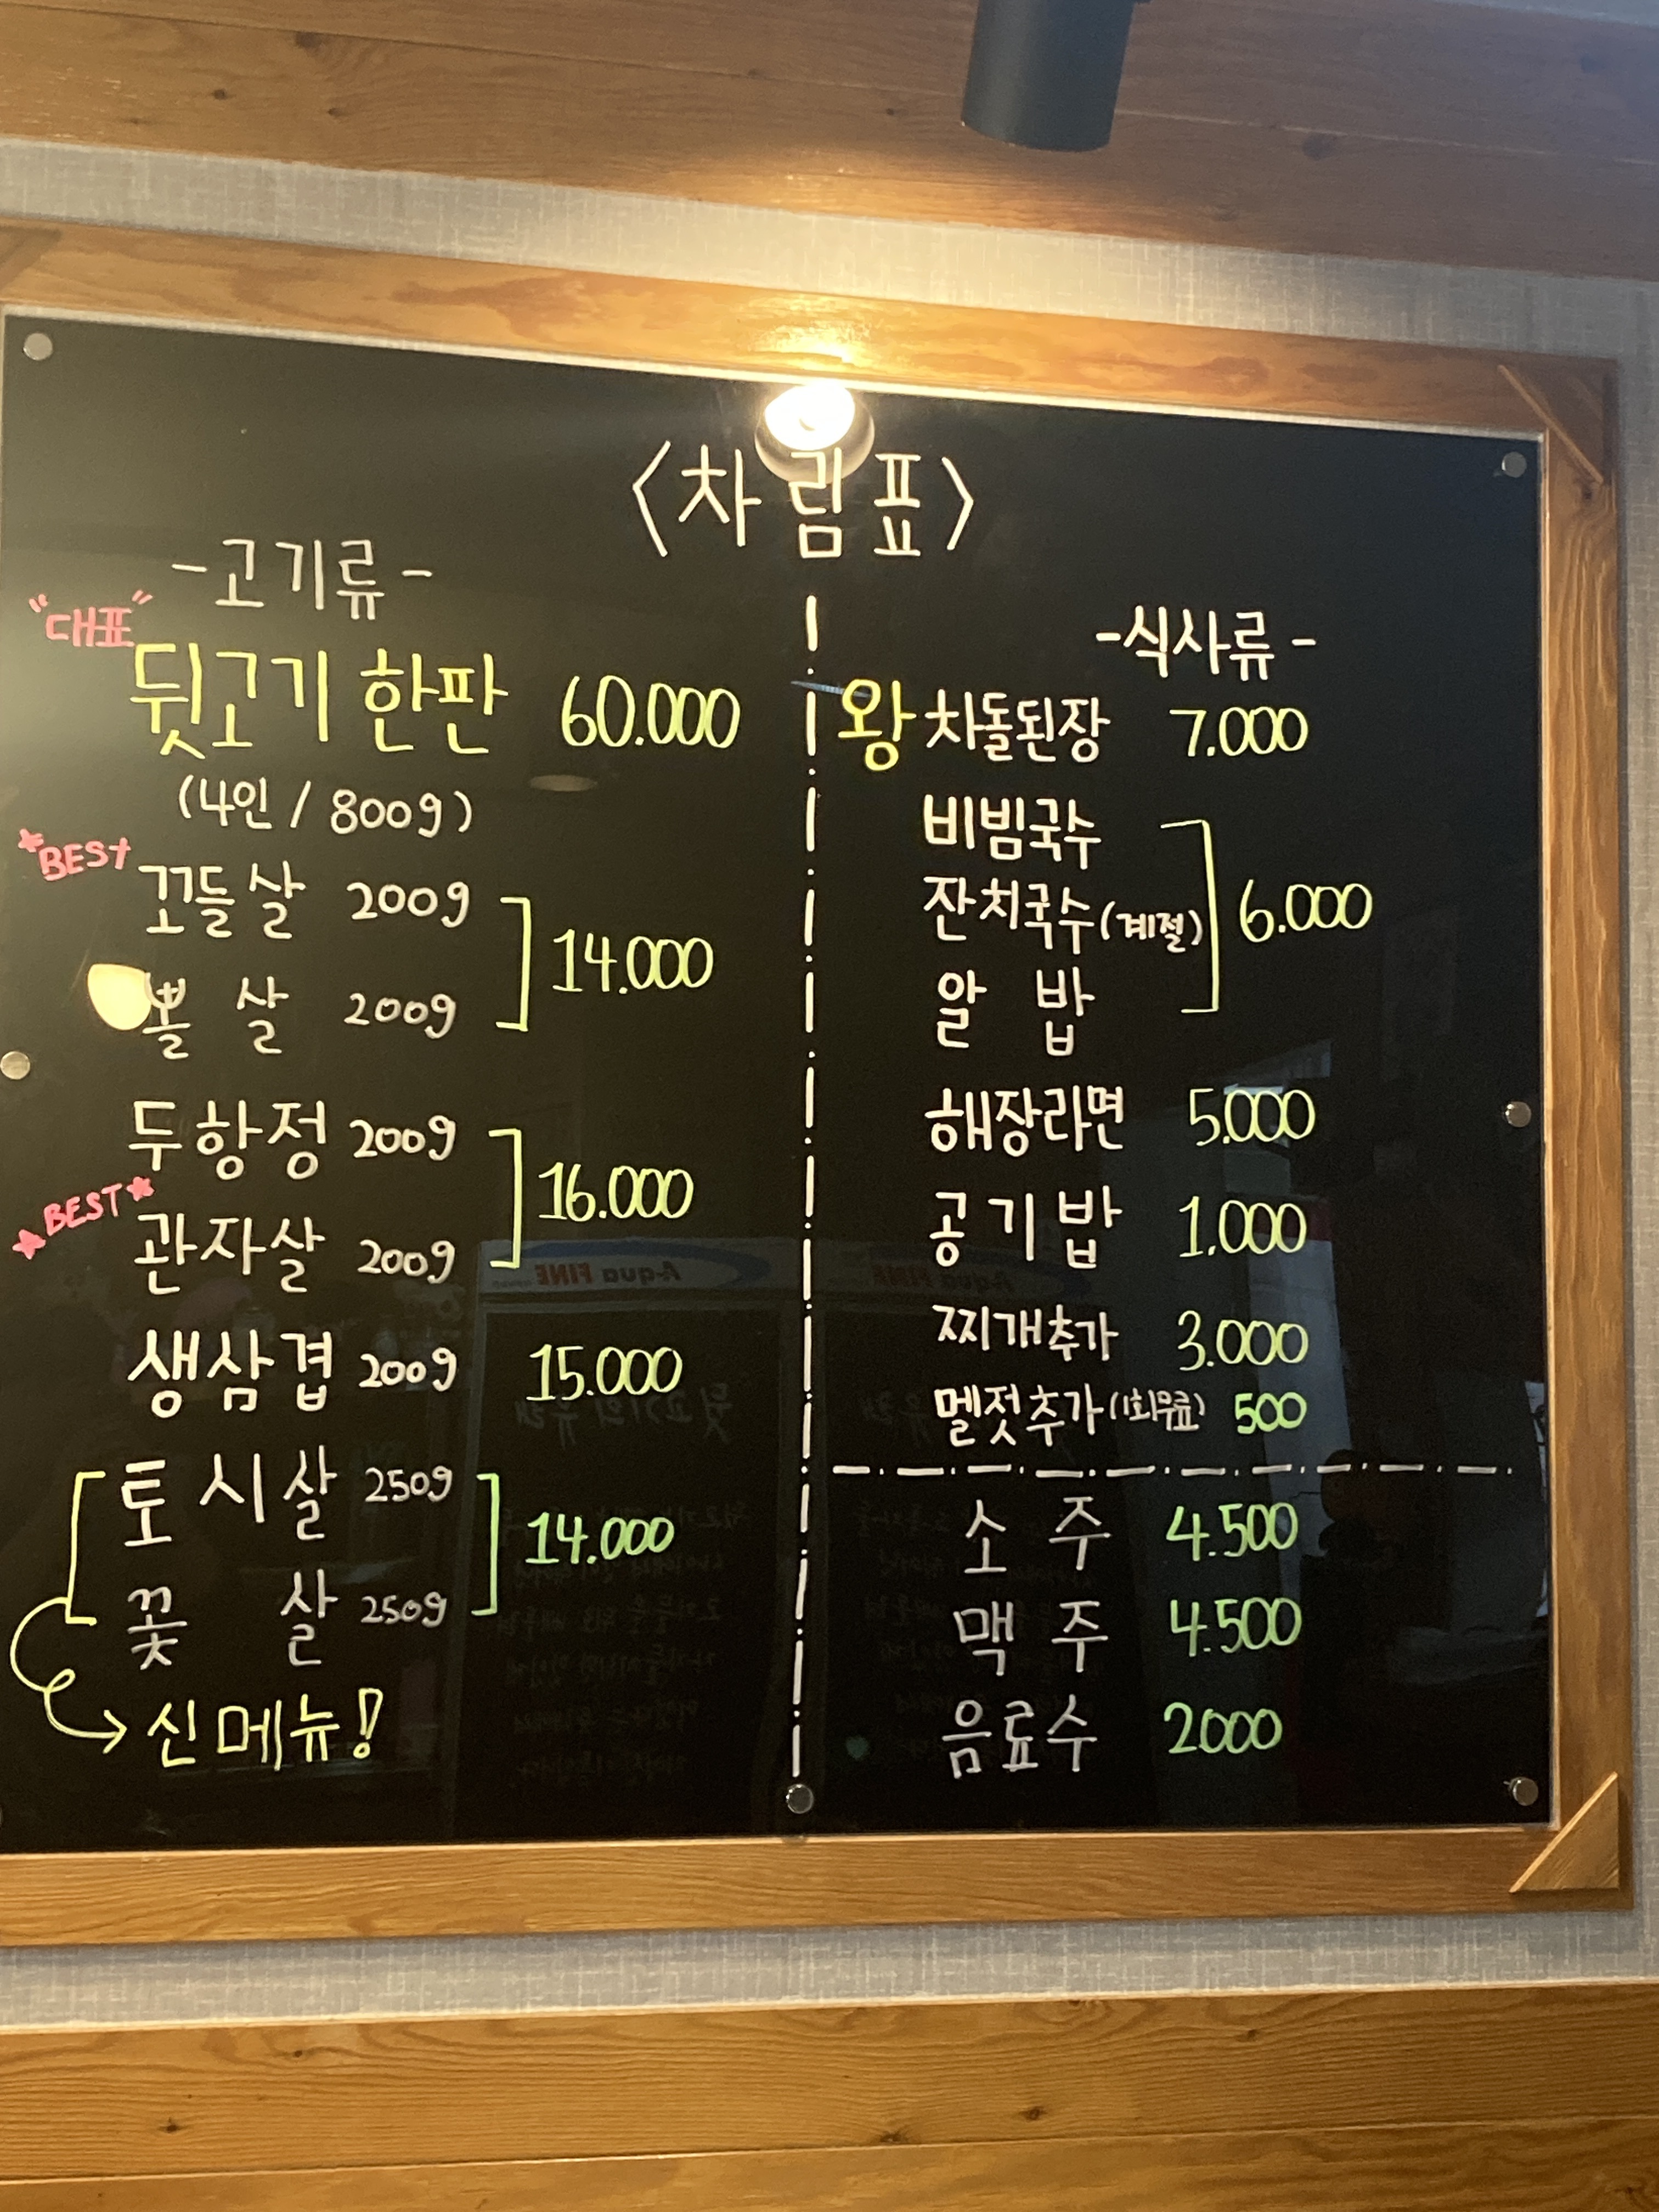 <차림표>
-고기류-
"대표"
뒷고기 한판 60.000
(4인 / 800g)
*BEST
꼬들살 200g
뽈 살 200g
14.000
두항정 200g
★BEST★
관자살 200g
16.000
생삼겹 200g 15.000
토시살 250g
꽃 살 250g
14.000
신메뉴!
-식사류-
왕차돌된장 7.000
비빔국수
잔치국수(계절)
알 밥
6.000
해장라면 5.000
공기밥 1.000
찌개추가 3.000
멜젓추가(1회무료) 500
소 주 4.500
맥 주 4.500
음료수 2000
Aqua FINE